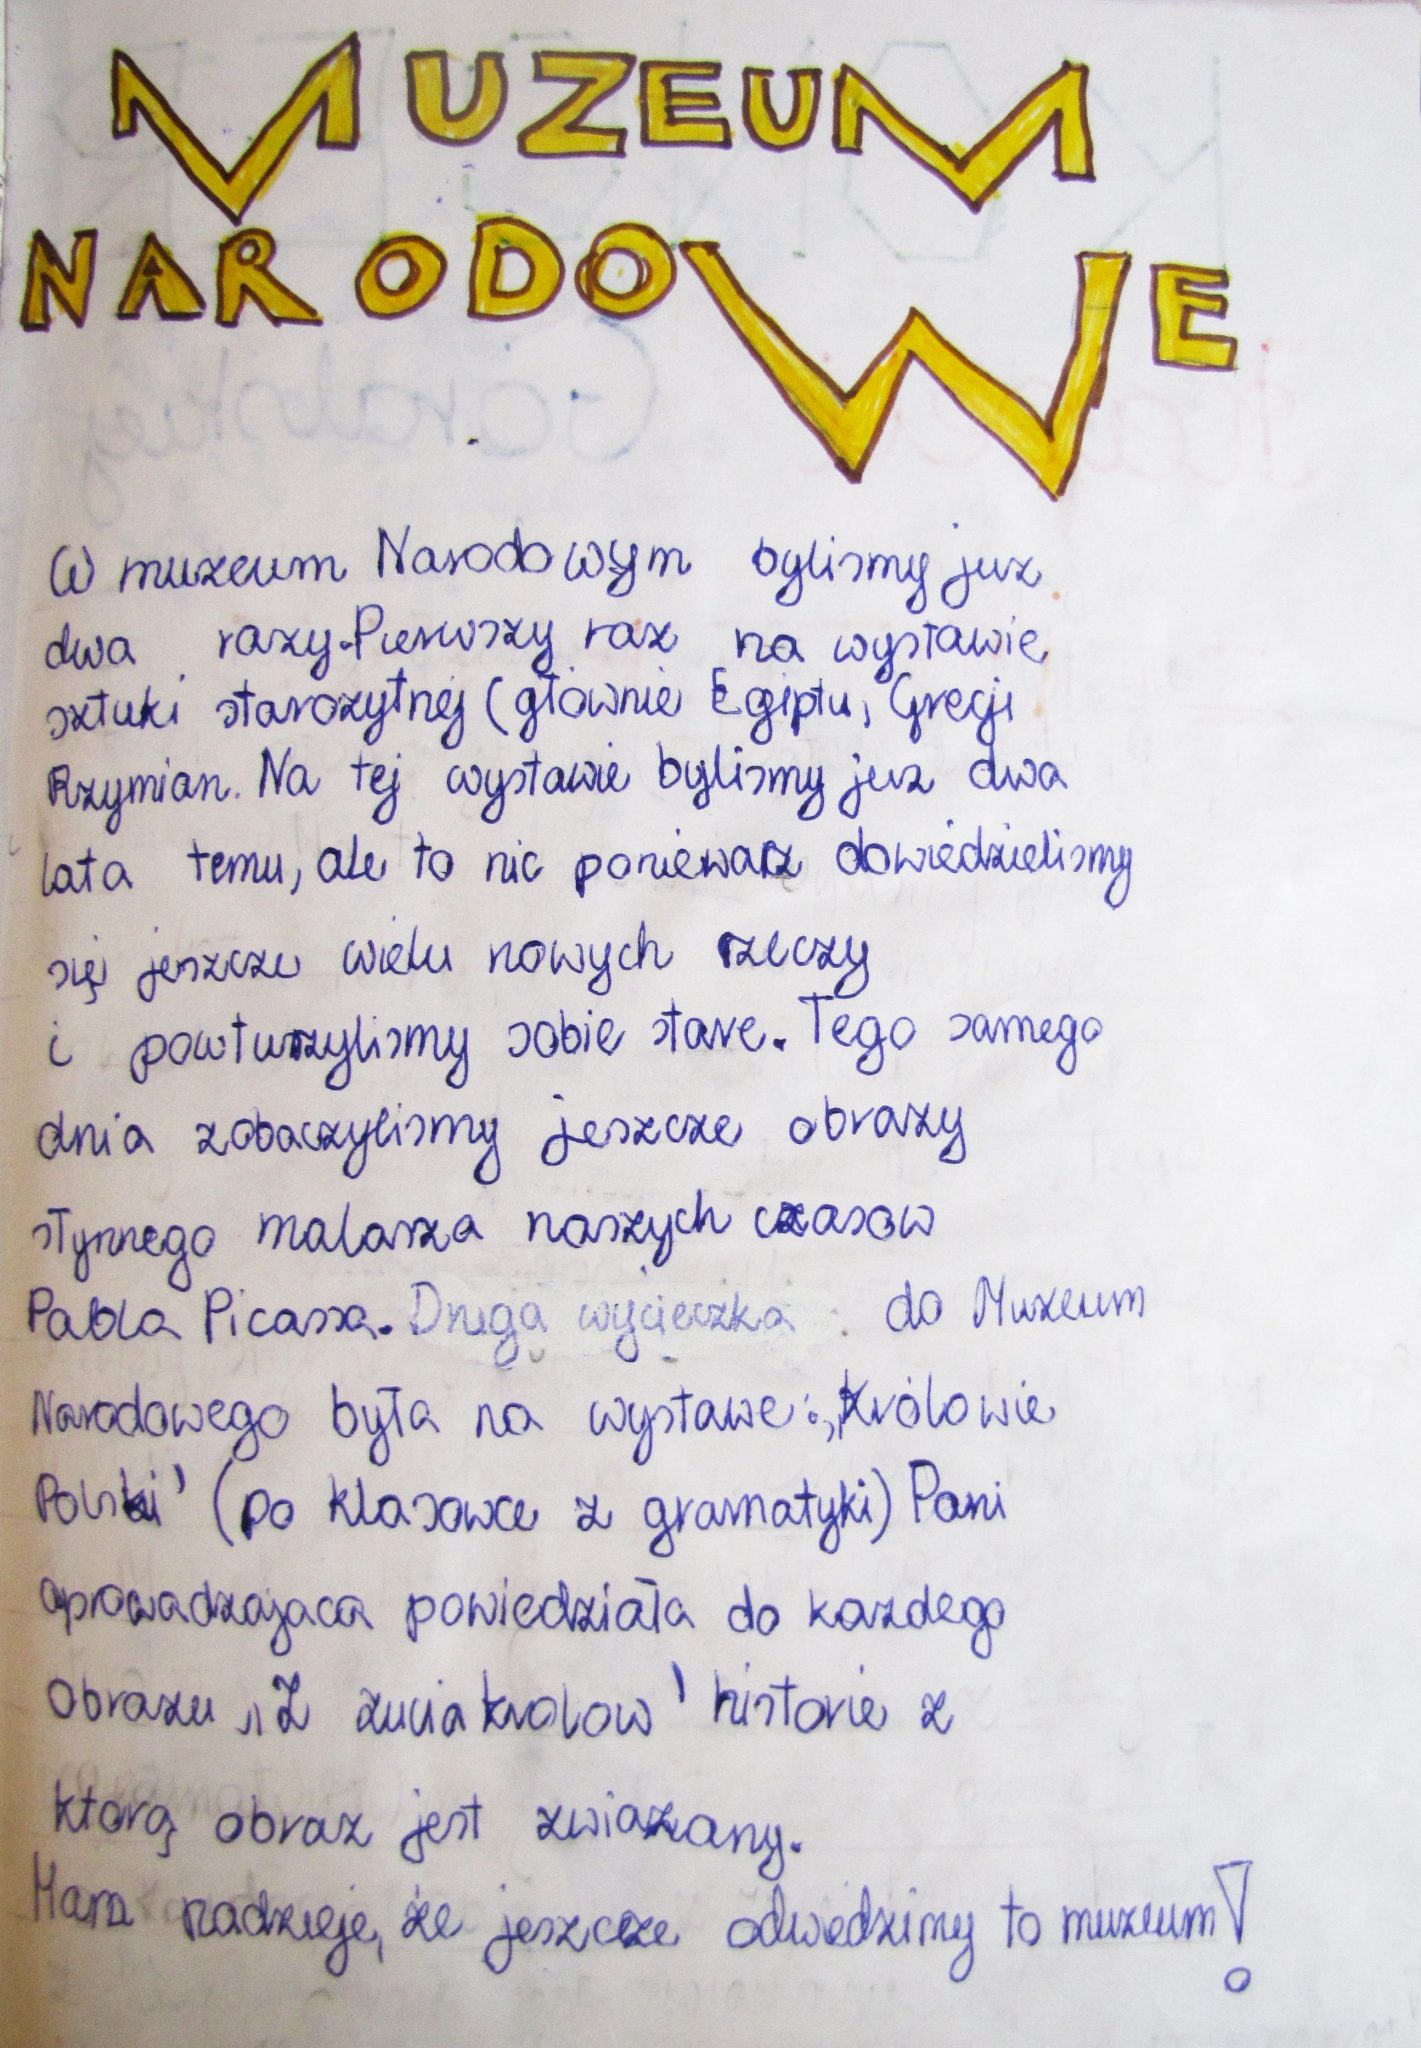 MUZEUM
NARODOWE
W muzeum Narodowym bylismy juz
dwa razy. Pierwszy raz na wystawie
sztuki starozytnej (głównie Egiptu, Grecji
Rzymian. Na tej wystawie bylismy juz dwa
lata temu, ale to nic poniewarz dowiedzielismy
się jeszcze wielu nowych rzeczy
i powturzylismy sobie stare. Tego samego
dnia zobaczylismy jeszcze obrazy
słynnego malarza naszych czasow
Pabla Picassa. Druga wycieczka do Muzeum
Narodowego była na wystawe: "Królowie
Polski" (po klasowce z gramatyki) Pani
oprowadzajaca powiedziała do kazdego
obrazu "Z zucia krolow" historie z
ktorą obraz jest zwiazany.
Mam nadzieje, że jeszcze odwedzimy to muzeum!